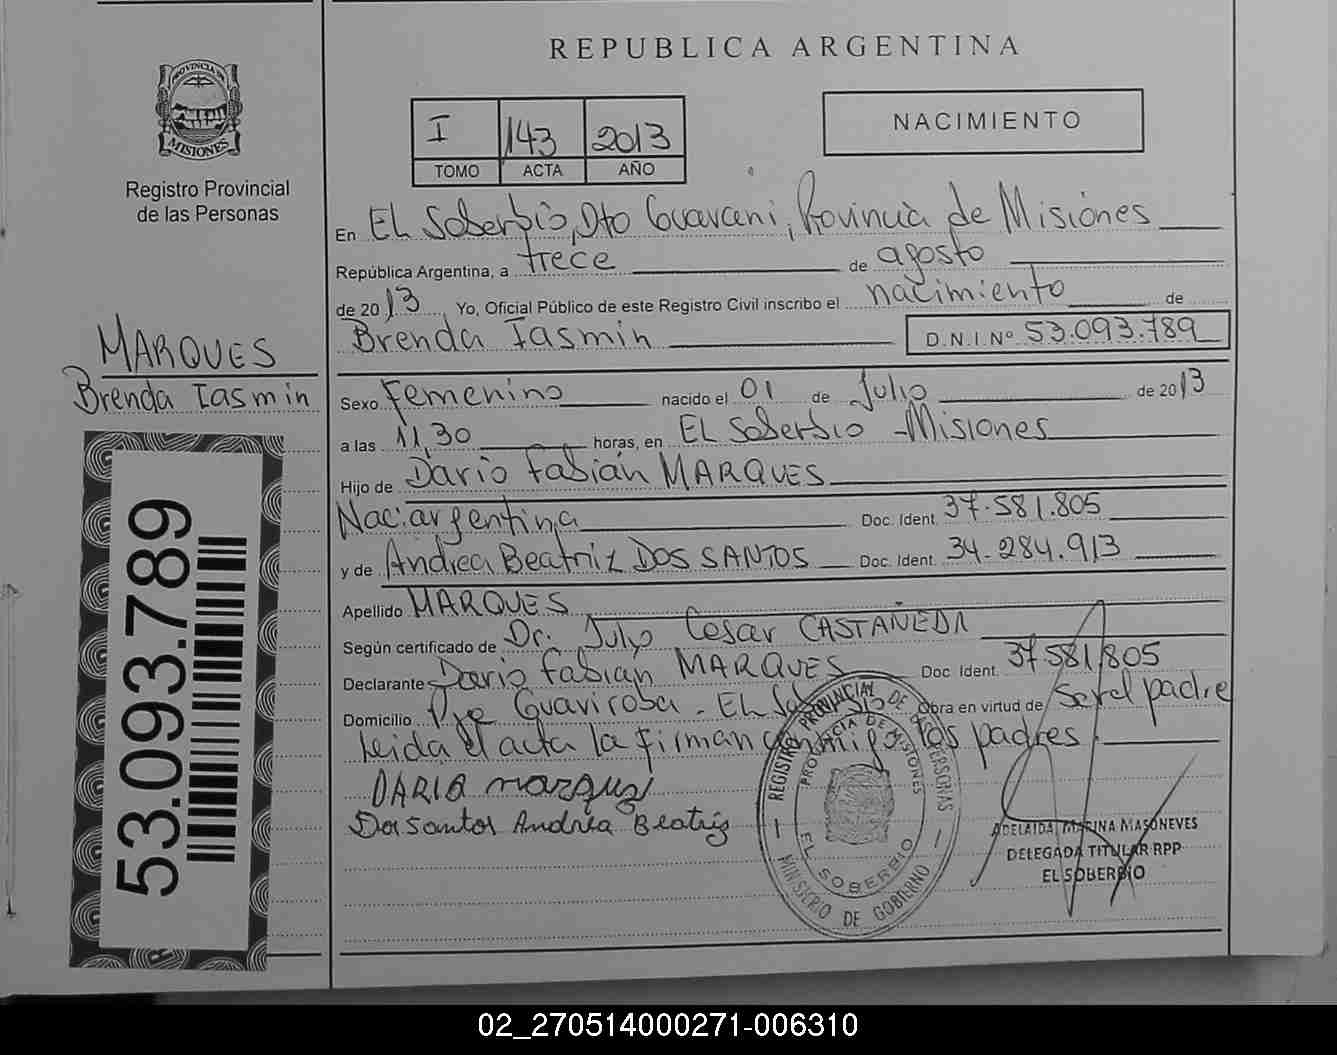 REPUBLICA ARGENTINA
PROVINCIA DE
MISIONES
Registro Provincial
de las Personas
I 143 2013
TOMO ACTA AÑO
NACIMIENTO
En El Soberbio, Dto Guarani, Provincia de Misiones
República Argentina, a trece de agosto
de 2013 Yo, Oficial Público de este Registro Civil inscribo el nacimiento de
Brenda Iasmin D.N.I.Nº 53.093.789
MARQUES
Brenda Iasmin
Sexo Femenino nacido el 01 de Julio de 2013
a las 11,30 horas, en El Soberbio - Misiones
Hijo de Dario Fabián MARQUES
Nac: argentina Doc. Ident. 37.581.805
y de Andrea Beatriz DOS SANTOS Doc. Ident. 34.284.913
Apellido MARQUES
Según certificado de Dr. Julio Cesar CASTAÑEDA
Declarante Dario Fabian MARQUES Doc Ident. 37.581.805
Domicilio Pje Guavirosa - El Soberbio Obra en virtud de Ser el padre
Leida el acta la firman conmigo los padres.
DARIO marquez
Dos Santos Andréa Beatriz
53.093.789
REGISTRO PROVINCIAL DE LAS PERSONAS
PROVINCIA DE MISIONES
EL SOBERBIO
MINISTERIO DE GOBIERNO
ADELAIDA MARINA MASONEVES
DELEGADA TITULAR RPP
EL SOBERBIO
02_270514000271-006310